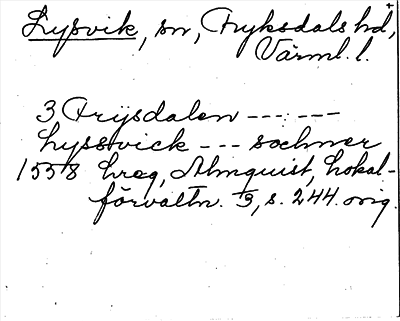 Lysvik, sn, Fryksdals hd,
Värml. l.
3 Frijsdalen --- ---
Lyssvick --- sochner
1558 hreg, Almquist, Lokal-
förvaltn. 3, s. 244. orig.